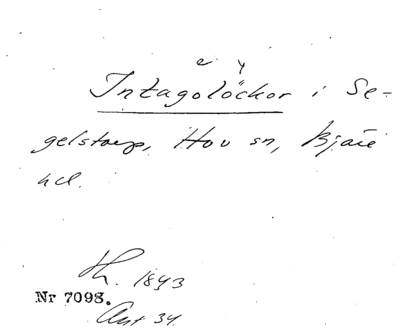 e y
Intagolöckor i Se-
gelstorp, Hov sn, Bjäre
hd.
Th. 1893
Nr 7098.
Ant 34.